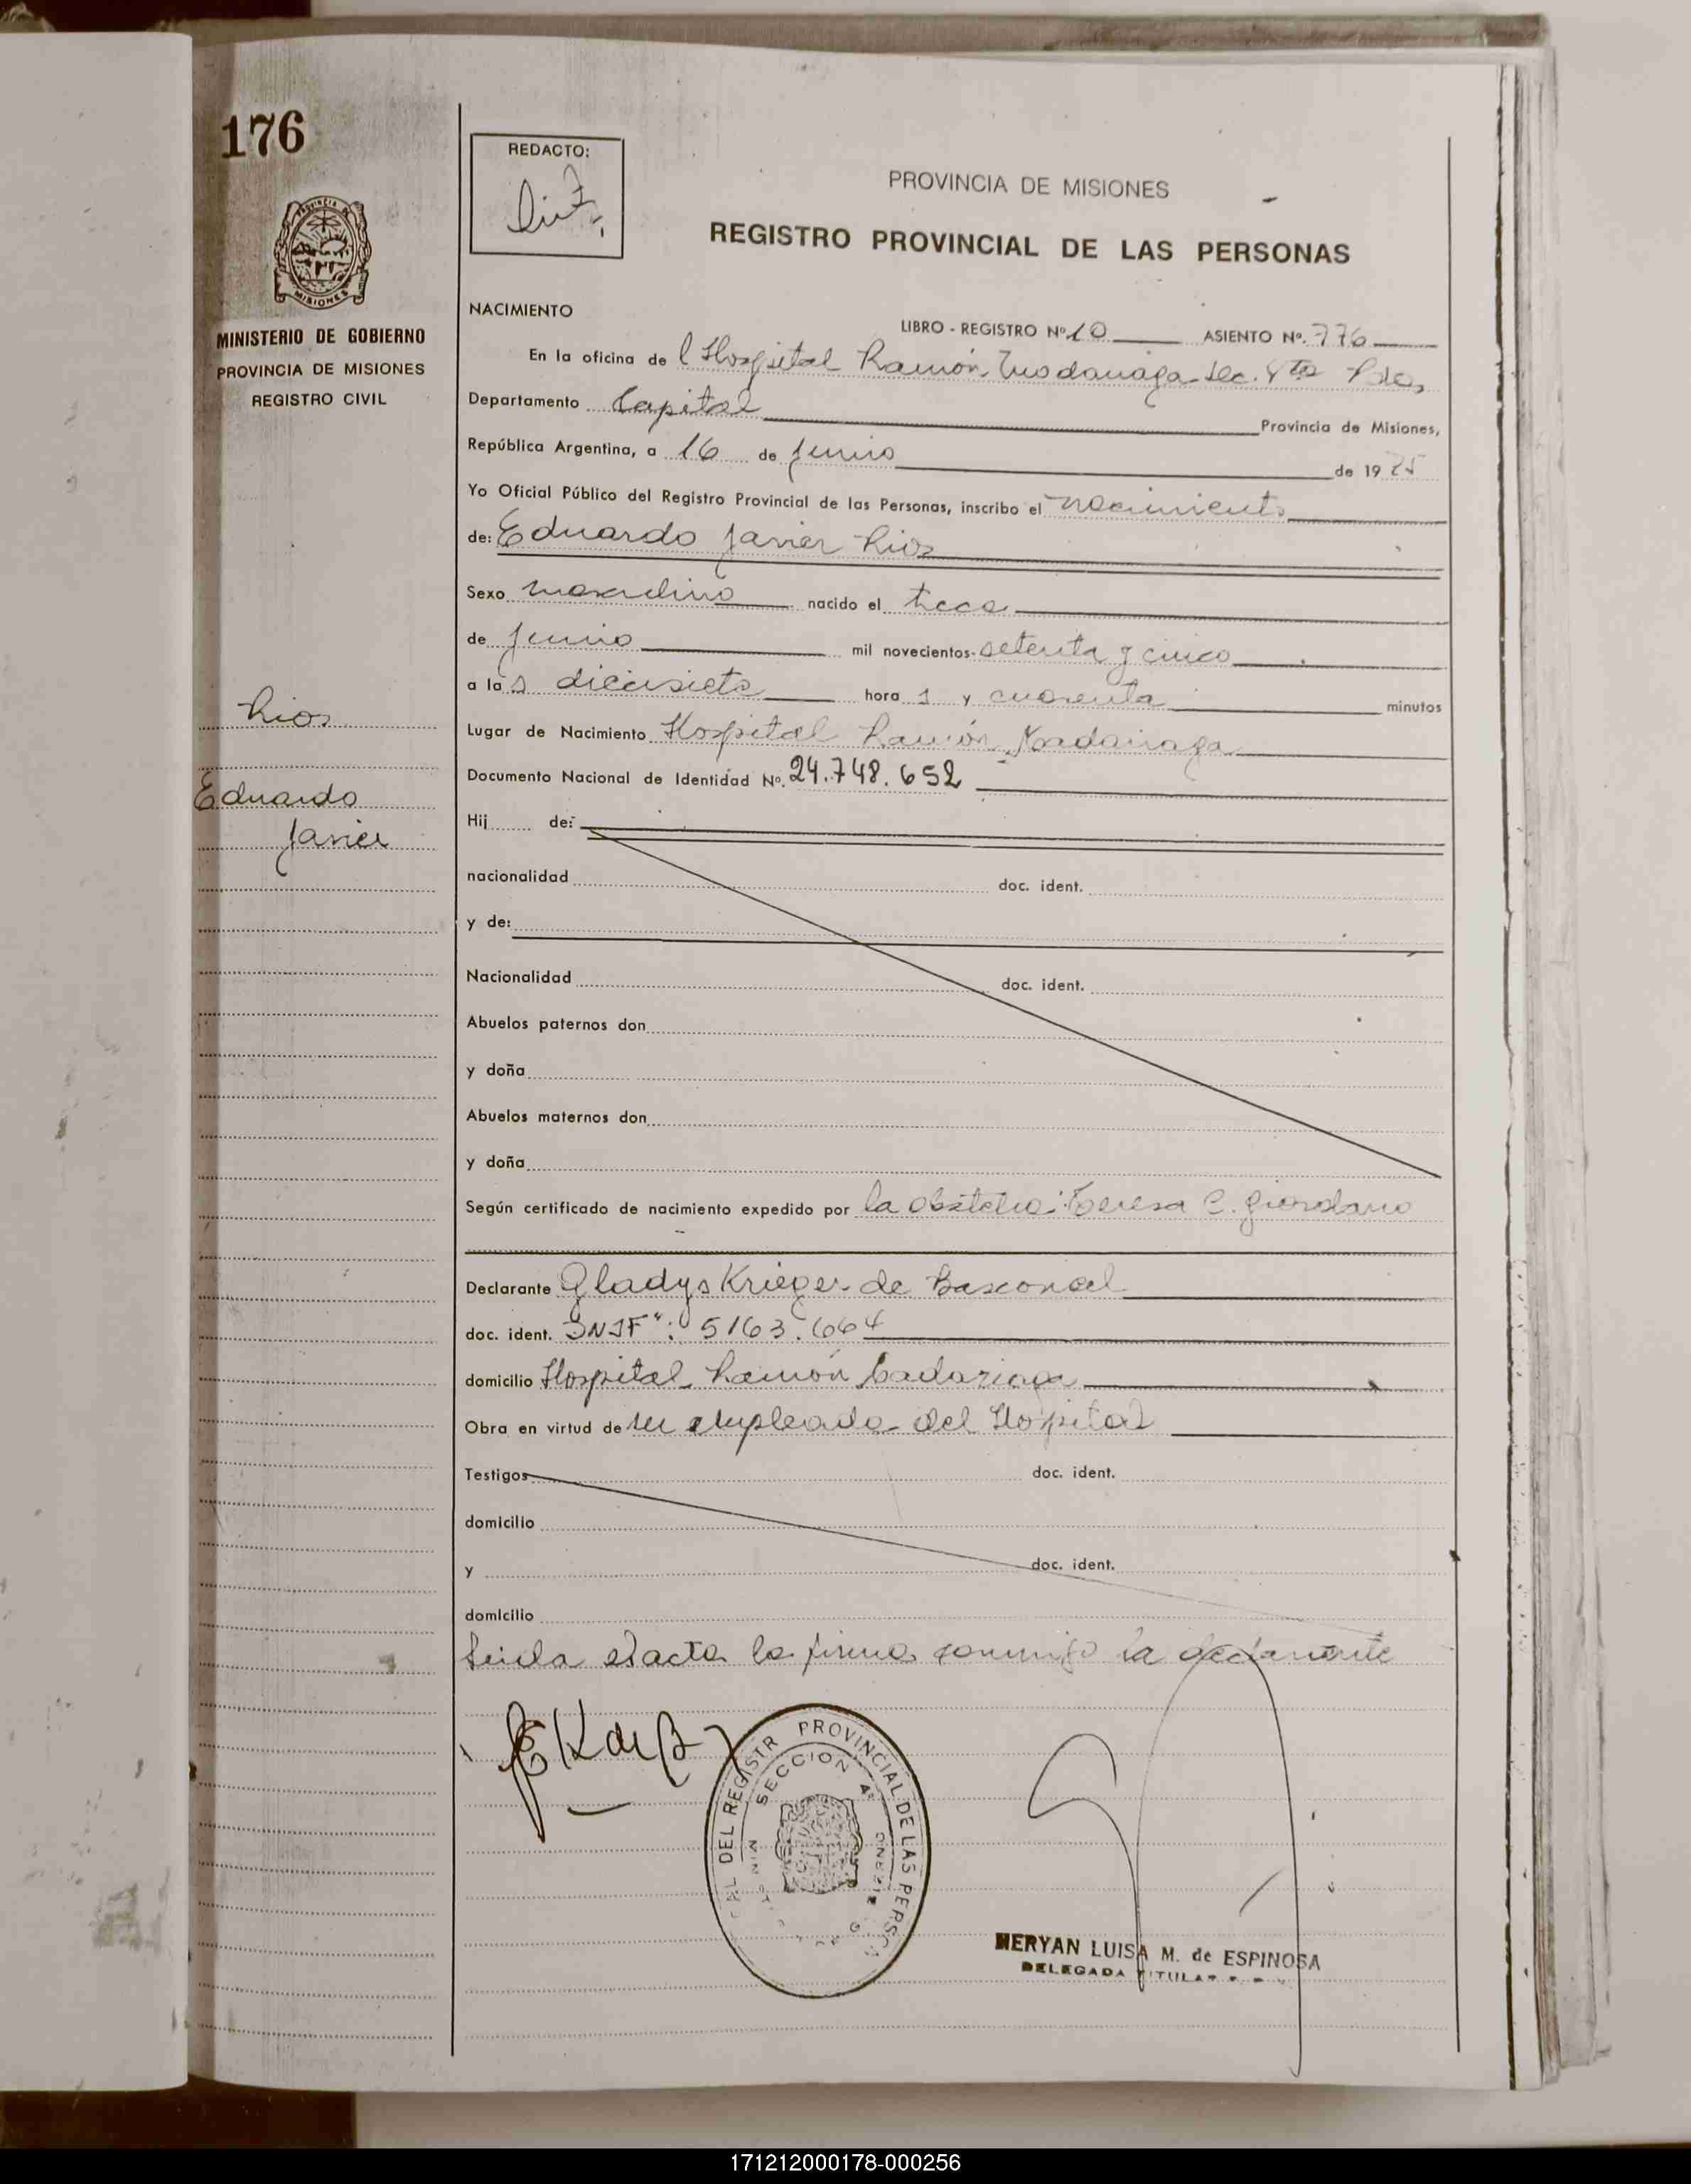 176
REDACTO:
PROVINCIA DE
MISIONES
PROVINCIA DE MISIONES
REGISTRO PROVINCIAL DE LAS PERSONAS
MINISTERIO DE GOBIERNO
PROVINCIA DE MISIONES
REGISTRO CIVIL
NACIMIENTO
LIBRO - REGISTRO Nº 10 ASIENTO Nº. 776
En la oficina de l Hospital Ramón Madariaga Sec. 4ta Pdas,
Departamento Capital Provincia de Misiones,
República Argentina, a 16 de Junio de 19 75
Yo Oficial Público del Registro Provincial de las Personas, inscribo el nacimiento
de: Eduardo Javier Rios
Sexo masculino nacido el trece
de Junio mil novecientos setenta y cinco
a la s diecisiete hora s y cuarenta minutos
Rios
Lugar de Nacimiento Hospital Ramón Madariaga
Eduardo
Documento Nacional de Identidad Nº. 24.748.652
Javier
Hij de:
nacionalidad doc. ident.
y de:
Nacionalidad doc. ident.
Abuelos paternos don
y doña
Abuelos maternos don
y doña
Según certificado de nacimiento expedido por la obstetra: Teresa C. Giordano
Declarante Gladys Krieger de Basconcel
doc. ident. 5163.664
domicilio Hospital Ramón Madariaga
Obra en virtud de ser empleada del Hospital
Testigos doc. ident.
domicilio
y doc. ident.
domicilio
Leida el acta la firma conmigo la declarante
GK de B
DEL REGISTR PROVINCIAL DE LAS PERSON
SECCION 4ª
MERYAN LUISA M. de ESPINOSA
DELEGADA TITULAR
171212000178-000256